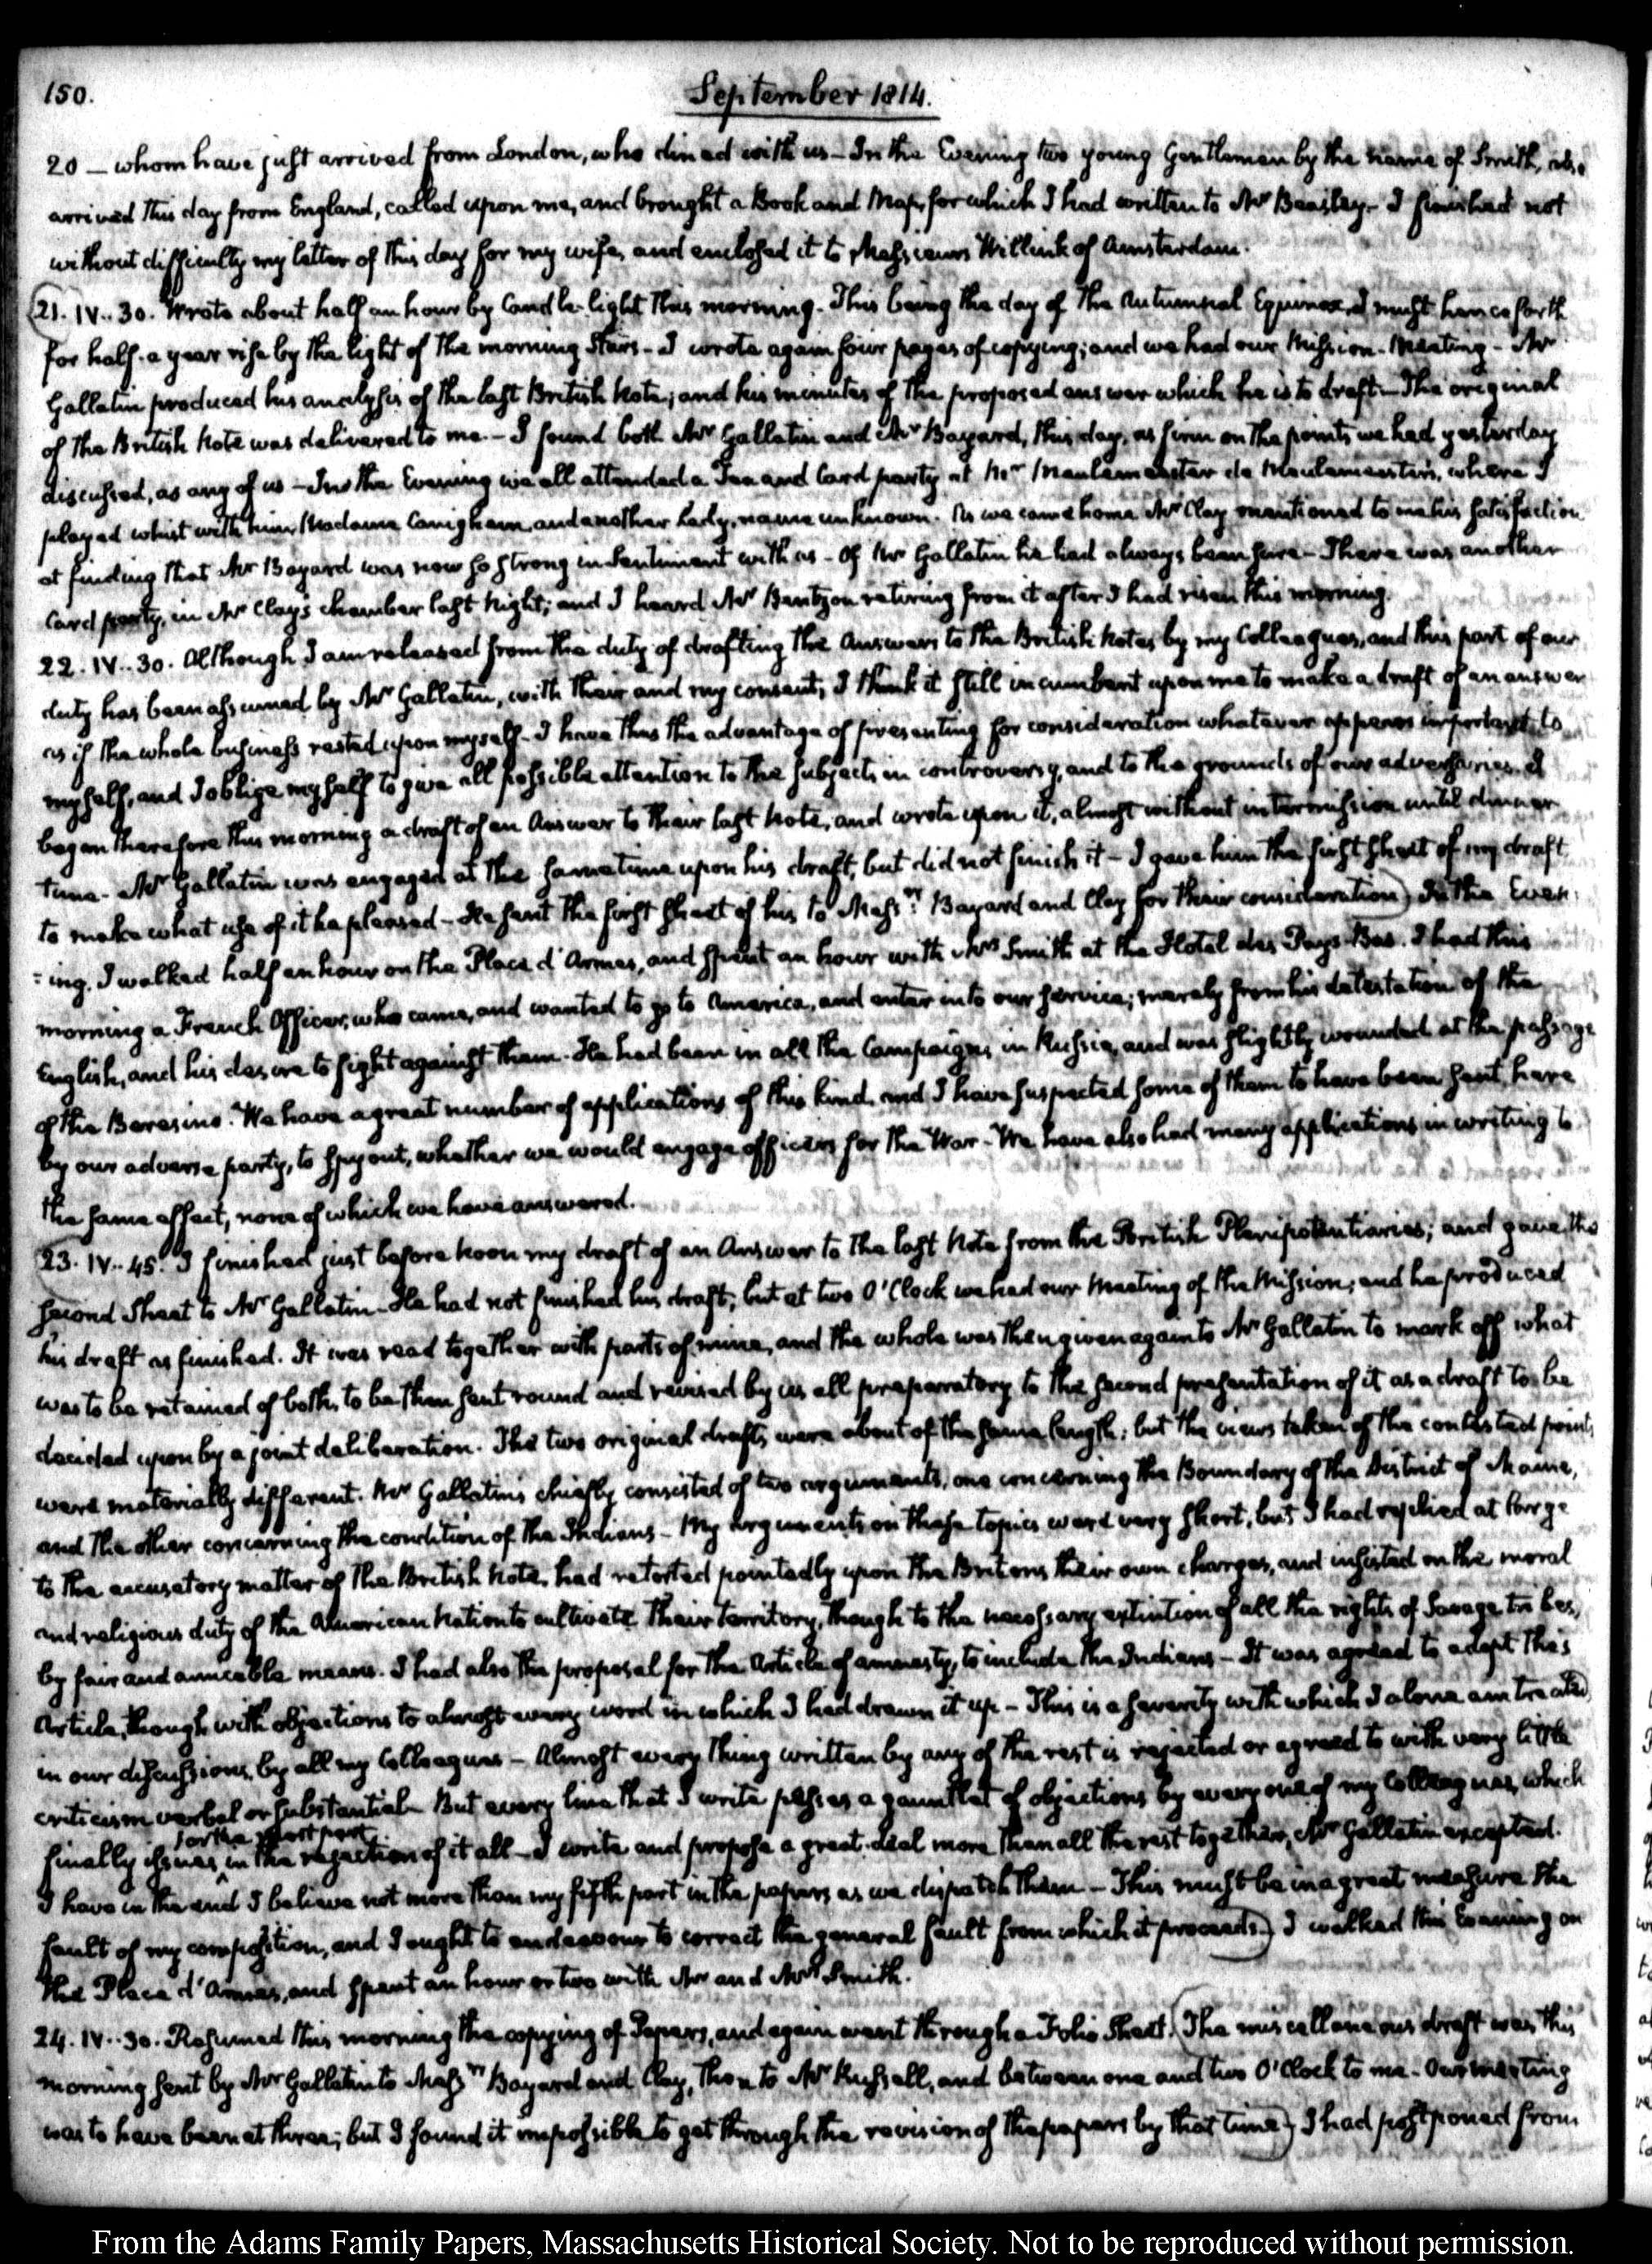 150.
September 1814.
20 — whom have just arrived from London, who dined with us – In the Evening two young Gentlemen by the name of Smith, also
arrived this day from England, called upon me, and brought a Book and Map, for which I had written to Mr Beasley – I finished not
without difficulty my letter of this day for my wife, and enclosed it to Messieurs Willink of Amsterdam.
21. IV..30. Wrote about half an hour by Candle-light this morning. This being the day of the Autumnal Equinox, I must henceforth
for half a year rise by the light of the morning Stars – I wrote again four pages of copying; and we had our Mission-Meeting – Mr
Gallatin produced his analysis of the last British Note; and his minutes of the proposed answer which he is to draft – The original
of the British Note was delivered to me. – I found both Mr Gallatin and Mr Bayard, this day, as firm on the points we had yesterday
discussed, as any of us – In the Evening we all attended a Tea and Card party at Mr Meulemeester de Meulemeester, where I
played whist with him, Madame Canigham, and another Lady, name unknown. As we came home Mr Clay mentioned to me his satisfaction
at finding that Mr Bayard was now so strong in Sentiment with us – Of Mr Gallatin he had always been sure – There was another
Card party, in Mr Clay's chamber last Night; and I heard Mr Bentzon retiring from it after I had risen this morning.
22. IV..30. Although I am released from the duty of drafting the Answers to the British Notes by my Colleagues, and this part of our
duty has been assumed by Mr Gallatin, with their and my consent, I think it still incumbent upon me to make a draft of an answer
as if the whole business rested upon myself – I have thus the advantage of presenting for consideration whatever appears important to
myself, and I oblige myself to give all possible attention to the subjects in controversy, and to the grounds of our adversaries. I
began therefore this morning a draft of an Answer to their last Note, and wrote upon it, almost without intermission until dinner
time – Mr Gallatin was engaged at the same time upon his draft, but did not finish it – I gave him the first sheet of my draft,
to make what use of it he pleased – He sent the first sheet of his to Messrs Bayard and Clay for their consideration) In the Even-
-ing, I walked half an hour on the Place d'Armes, and spent an hour with Mrs Smith at the Hotel des Pays-Bas. I had this
morning a French Officer, who came, and wanted to go to America, and enter into our service; merely from his detestation of the
English, and his desire to fight against them. He had been in all the Campaigns in Russia, and was slightly wounded at the passage
of the Beresino. We have a great number of applications of this kind, and I have suspected some of them to have been sent here
by our adverse party, to spy out, whether we would engage officers for the War – We have also had many applications in writing to
the same effect, none of which we have answered.
23. IV..45. I finished just before noon my draft of an Answer to the last Note from the British Plenipotentiaries; and gave the
second Sheet to Mr Gallatin – He had not finished his draft; but at two O'Clock we had our Meeting of the Mission; and he produced
his draft as finished. It was read together with parts of mine, and the whole was then given again to Mr Gallatin to mark off what
was to be retained of both, to be then sent round and revised by us all preparatory to the second presentation of it as a draft to be
decided upon by a joint deliberation. The two original drafts were about of the same length; but the views taken of the contested points
were materially different. Mr Gallatin's chiefly consisted of two arguments, one concerning the Boundary of the District of Maine,
and the other concerning the condition of the Indians – My arguments on these topics were very short, but I had replied at large
to the accusatory matter of the British Note, had retorted pointedly upon the Britons their own charges, and insisted on the moral
and religious duty of the American Nation to cultivate their territory, though to the necessary extinction of all the rights of Savage tribes,
by fair and amicable means. I had also the proposal for the Article of amnesty, to include the Indians – It was agreed to adopt this
Article, though with objections to almost every word in which I had drawn it up – This is a severity with which I alone am treated
in our discussions by all my Colleagues – Almost every thing written by any of the rest is rejected or agreed to with very little
criticism verbal or substantial – But every line that I write passes a gauntlet of objections by every one of my Colleagues, which
for the most part
finally issues, in the rejection of it all – I write and propose a great deal more than all the rest together, Mr Gallatin excepted.
I have in the end I believe not more than my fifth part in the papers as we dispatch them – This must be in a great measure the
fault of my composition, and I ought to endeavour to correct the general fault from which it proceeds.) I walked this Evening on
the Place d'Armes, and spent an hour or two with Mr and Mrs Smith.
24. IV..30. Resumed this morning the copying of Papers, and again went through a Folio Sheet. (The miscellaneous draft was this
morning sent by Mr Gallatin to Messrs Bayard and Clay, then to Mr Russell, and between one and two O'Clock to me. Our meeting
was to have been at three; but I found it impossible to get through the revision of the papers by that time) I had postponed from
From the Adams Family Papers, Massachusetts Historical Society. Not to be reproduced without permission.